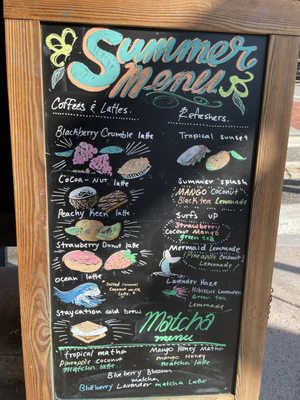 Summer
Menu
Coffees & Lattes.
Blackberry Crumble latte
Coco-Nut latte
Peachy Keen latte
Strawberry Donut latte
Ocean latte
Salted Caramel
Coconut milk
Latte
Staycation cold brew
Refreshers.
Tropical sunset
Summer Splash
MANGO Coconut
Black tea Lemonade
Surf's Up
Strawberry
Coconut Mango
green tea
Mermaid Lemonade
Pineapple Coconut
Lemonade
Lavender Haze
Hibiscus Lavender
Green tea
Lemonade
Matcha
menu
tropical matcha
Pineapple coconut
Matcha latte
Mango Honey Matcha
mango Honey
Matcha latte
Blueberry Blossom
matcha
Blueberry Lavender matcha Latte